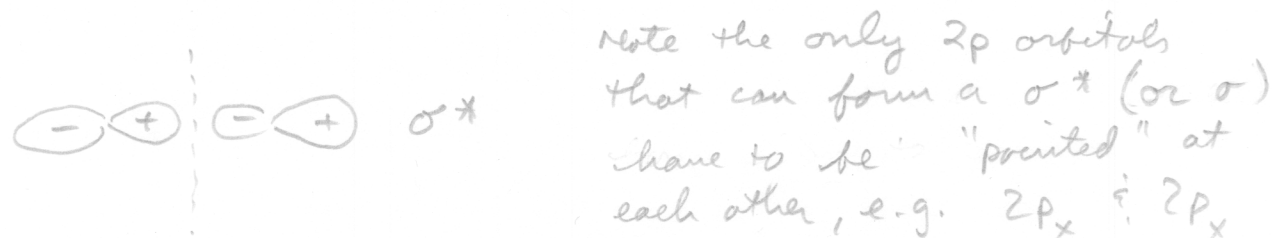 - + - + σ*
Note the only 2p orbitals
that can form a σ* (or σ)
have to be "pointed" at
each other, e.g. 2pₓ & 2pₓ